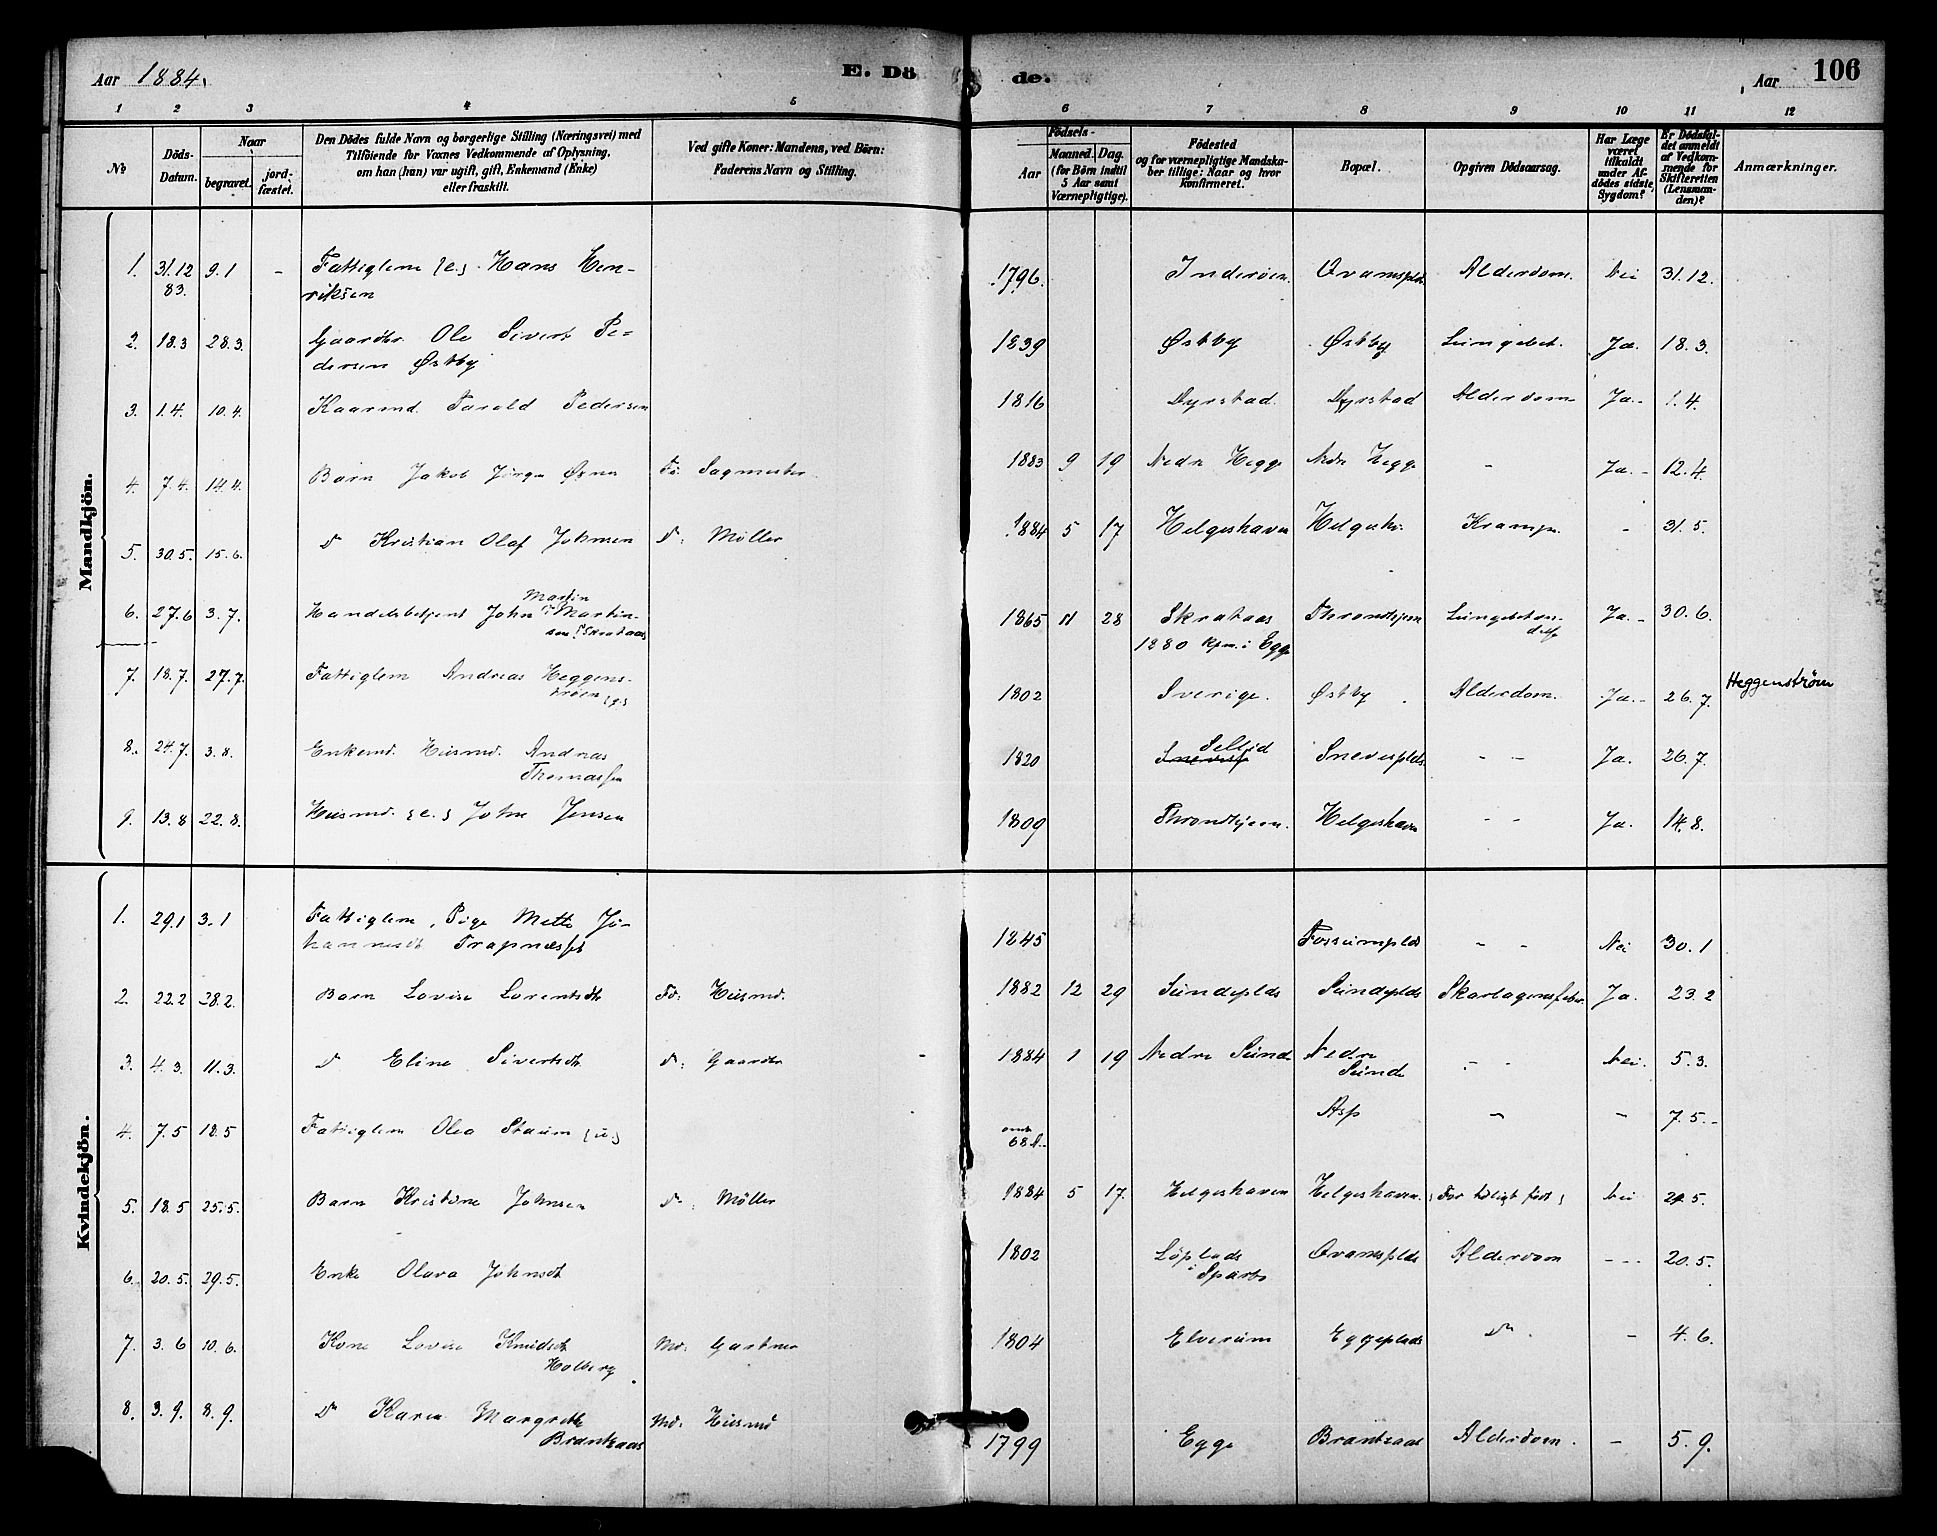 Aar 1884.
E. Dö de.
Aar
106
1 2 3 4 5 6 7 8 9 10 11 12
No
Döds-Datum.
Naar
begravet.
jord-fæstet.
Den Dödes fulde Navn og borgerlige Stilling (Næringsvei) med
Tilföiende for Voxnes Vedkommende af Oplysning,
om han (hun) var ugift, gift, Enkemand (Enke)
eller fraskilt.
Ved gifte Koner: Mandens, ved Börn:
Faderens Navn og Stilling.
Födsels-
Aar
Maaned. Dag.
(for Börn indtil
5 Aar samt
Værnepligtige).
Födested
og for værnepligtige Mandska-
ber tillige: Naar og hvor
konfirmeret.
Bopæl.
Opgiven Dödsaarsag.
Har Læge
været
tilkaldt
under Af-
dödes sidste
Sygdom?
Er Dödsfal-
det anmeldt
af Vedkom-
mende for
Skifteretten
(Lensman-
den)?
Anmærkninger.
Mandkjön.
1. 31.12 83. 9.1 - Fattiglem {e.} Hans Hen-
riksen 1796. Inderöen. Alderdom. Nei 31.12.
2. 18.3 28.3. Gaardbr. Ole Sivert Pe-
dersen Østby 1839 Østby Østby Lungebet. Ja. 18.3.
3. 1.4. 10.4. Kaarmd. Pedersen 1816 Dyrstad. Dyrstad Alderdom Ja. 1.4.
4. 7.4. 14.4. Barn Jakob Jörgen F: Sagmester 1883 9 19 Nedre Hegge Nedre Hegge - Ja. 12.4.
5. 30.5. 15.6. do Kristian Olaf Johnsen do: Møller 1884 5 17 Helgeshaven Helgesh. Krampe. - 31.5.
6. 27.6 3.7. Handelsbetjent John Martin Martin-
sen Skrataas 1865 11 28 Skrataas Throndhjem 
1880 kfm. i Egge Ja. 30.6.
7. 18.7. 27.7. Fattiglem Andreas Heggens-
trøen {g.} 1802 Sverige. Østby Alderdom. Ja. 26.7. Heggenstrøm
8. 24.7. 3.8. Enkemd. Husmd. Andreas
Thomassen 1820 Sellid Snevesplds - - Ja. 26.7.
9. 13.8 22.8. Husmd. {e.} John Jensen 1809 Throndhjem. Helgeshaven - - Ja. 14.8.
Kvindekjön.
1. 29.1 3.1 Fattiglem, Pige Mette Jo-
hannesdt 1845 Fossumplds - - Nei 30.1
2. 22.2 28.2. Barn Lovise Lorentsdt Fd: Husmd. 1882 12 29 Sundeplds Sundeplds Skarlagensfeber Ja. 23.2
3. 4.3. 11.3. do Eline Sivertsdt do: Gaardbr 1884 1 19 Nedre Sunde Nedre
Sunde - - Nei. 5.3.
4. 7.5 18.5 Fattiglem Olea Staum {u.} omtr
68 A. Asp - - 7.5.
5. 18.5 25.5. Barn Kristine Johnsen do: Møller 1884 5 17. Helgeshaven Helgeshaven. {For tidligt født} Nei 21.5.
6. 20.5. 29.5. Enke Olava Johnsdt 1802 Løplads
i Sparbo Alderdom - 20.5.
7. 3.6 10.6. Kone Lovise Knudsdt
Holberg Md: Gartner 1804 Elverum Eggeplads do - 4.6.
8. 3.9. 8.9. do Karen Margrethe
Brantsaas Md: Husmd 1799 Egge Brantsaas Alderdom. - 5.9.